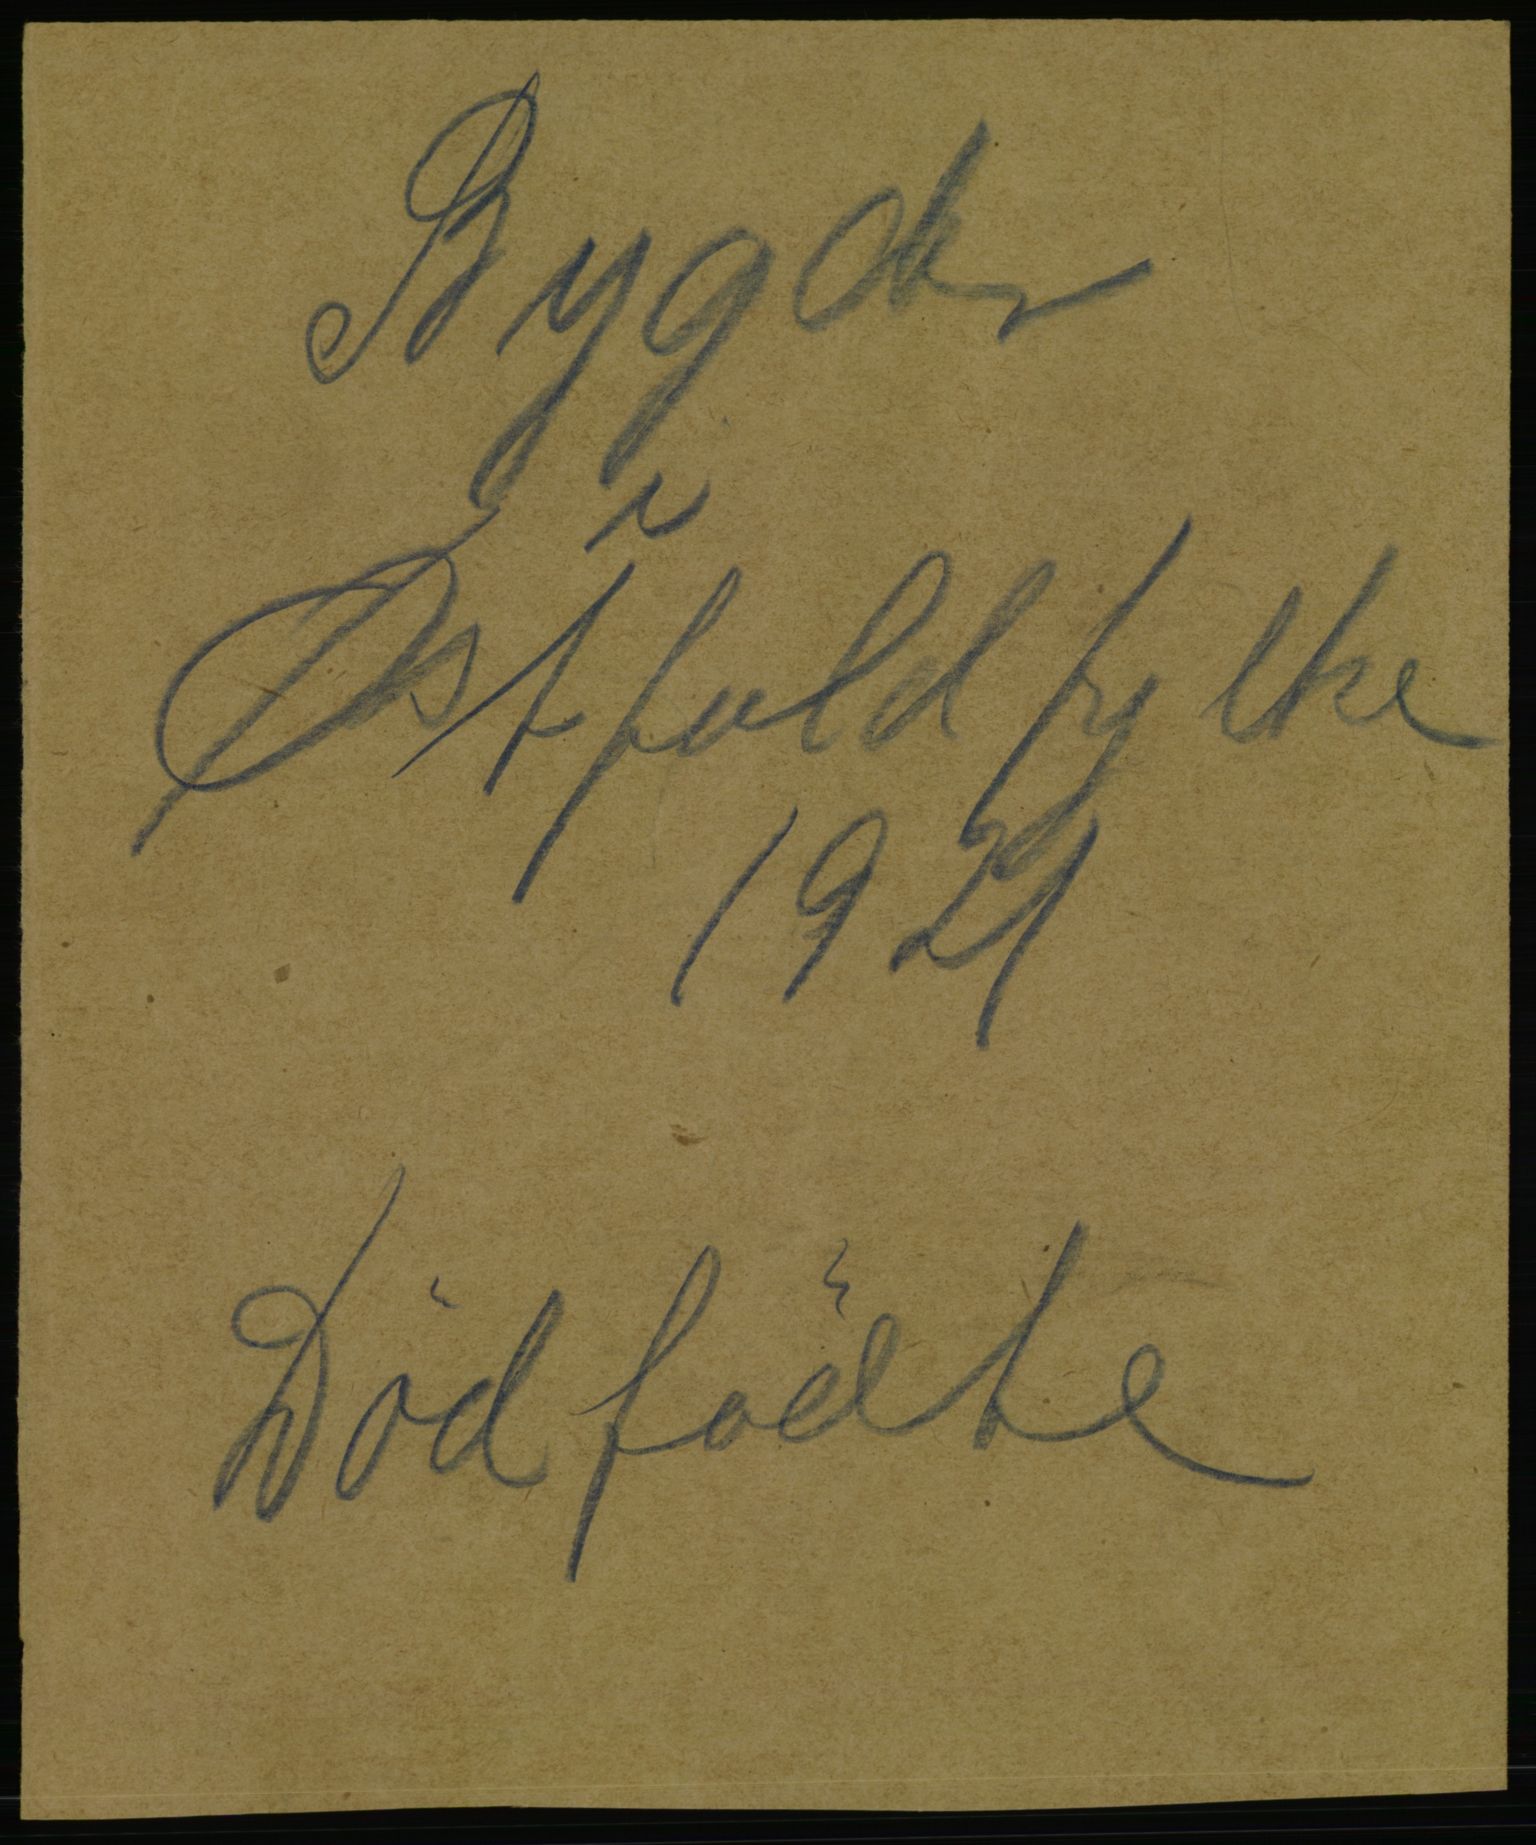 Bygder
i
Østfold fylke
1921
Dødfødte